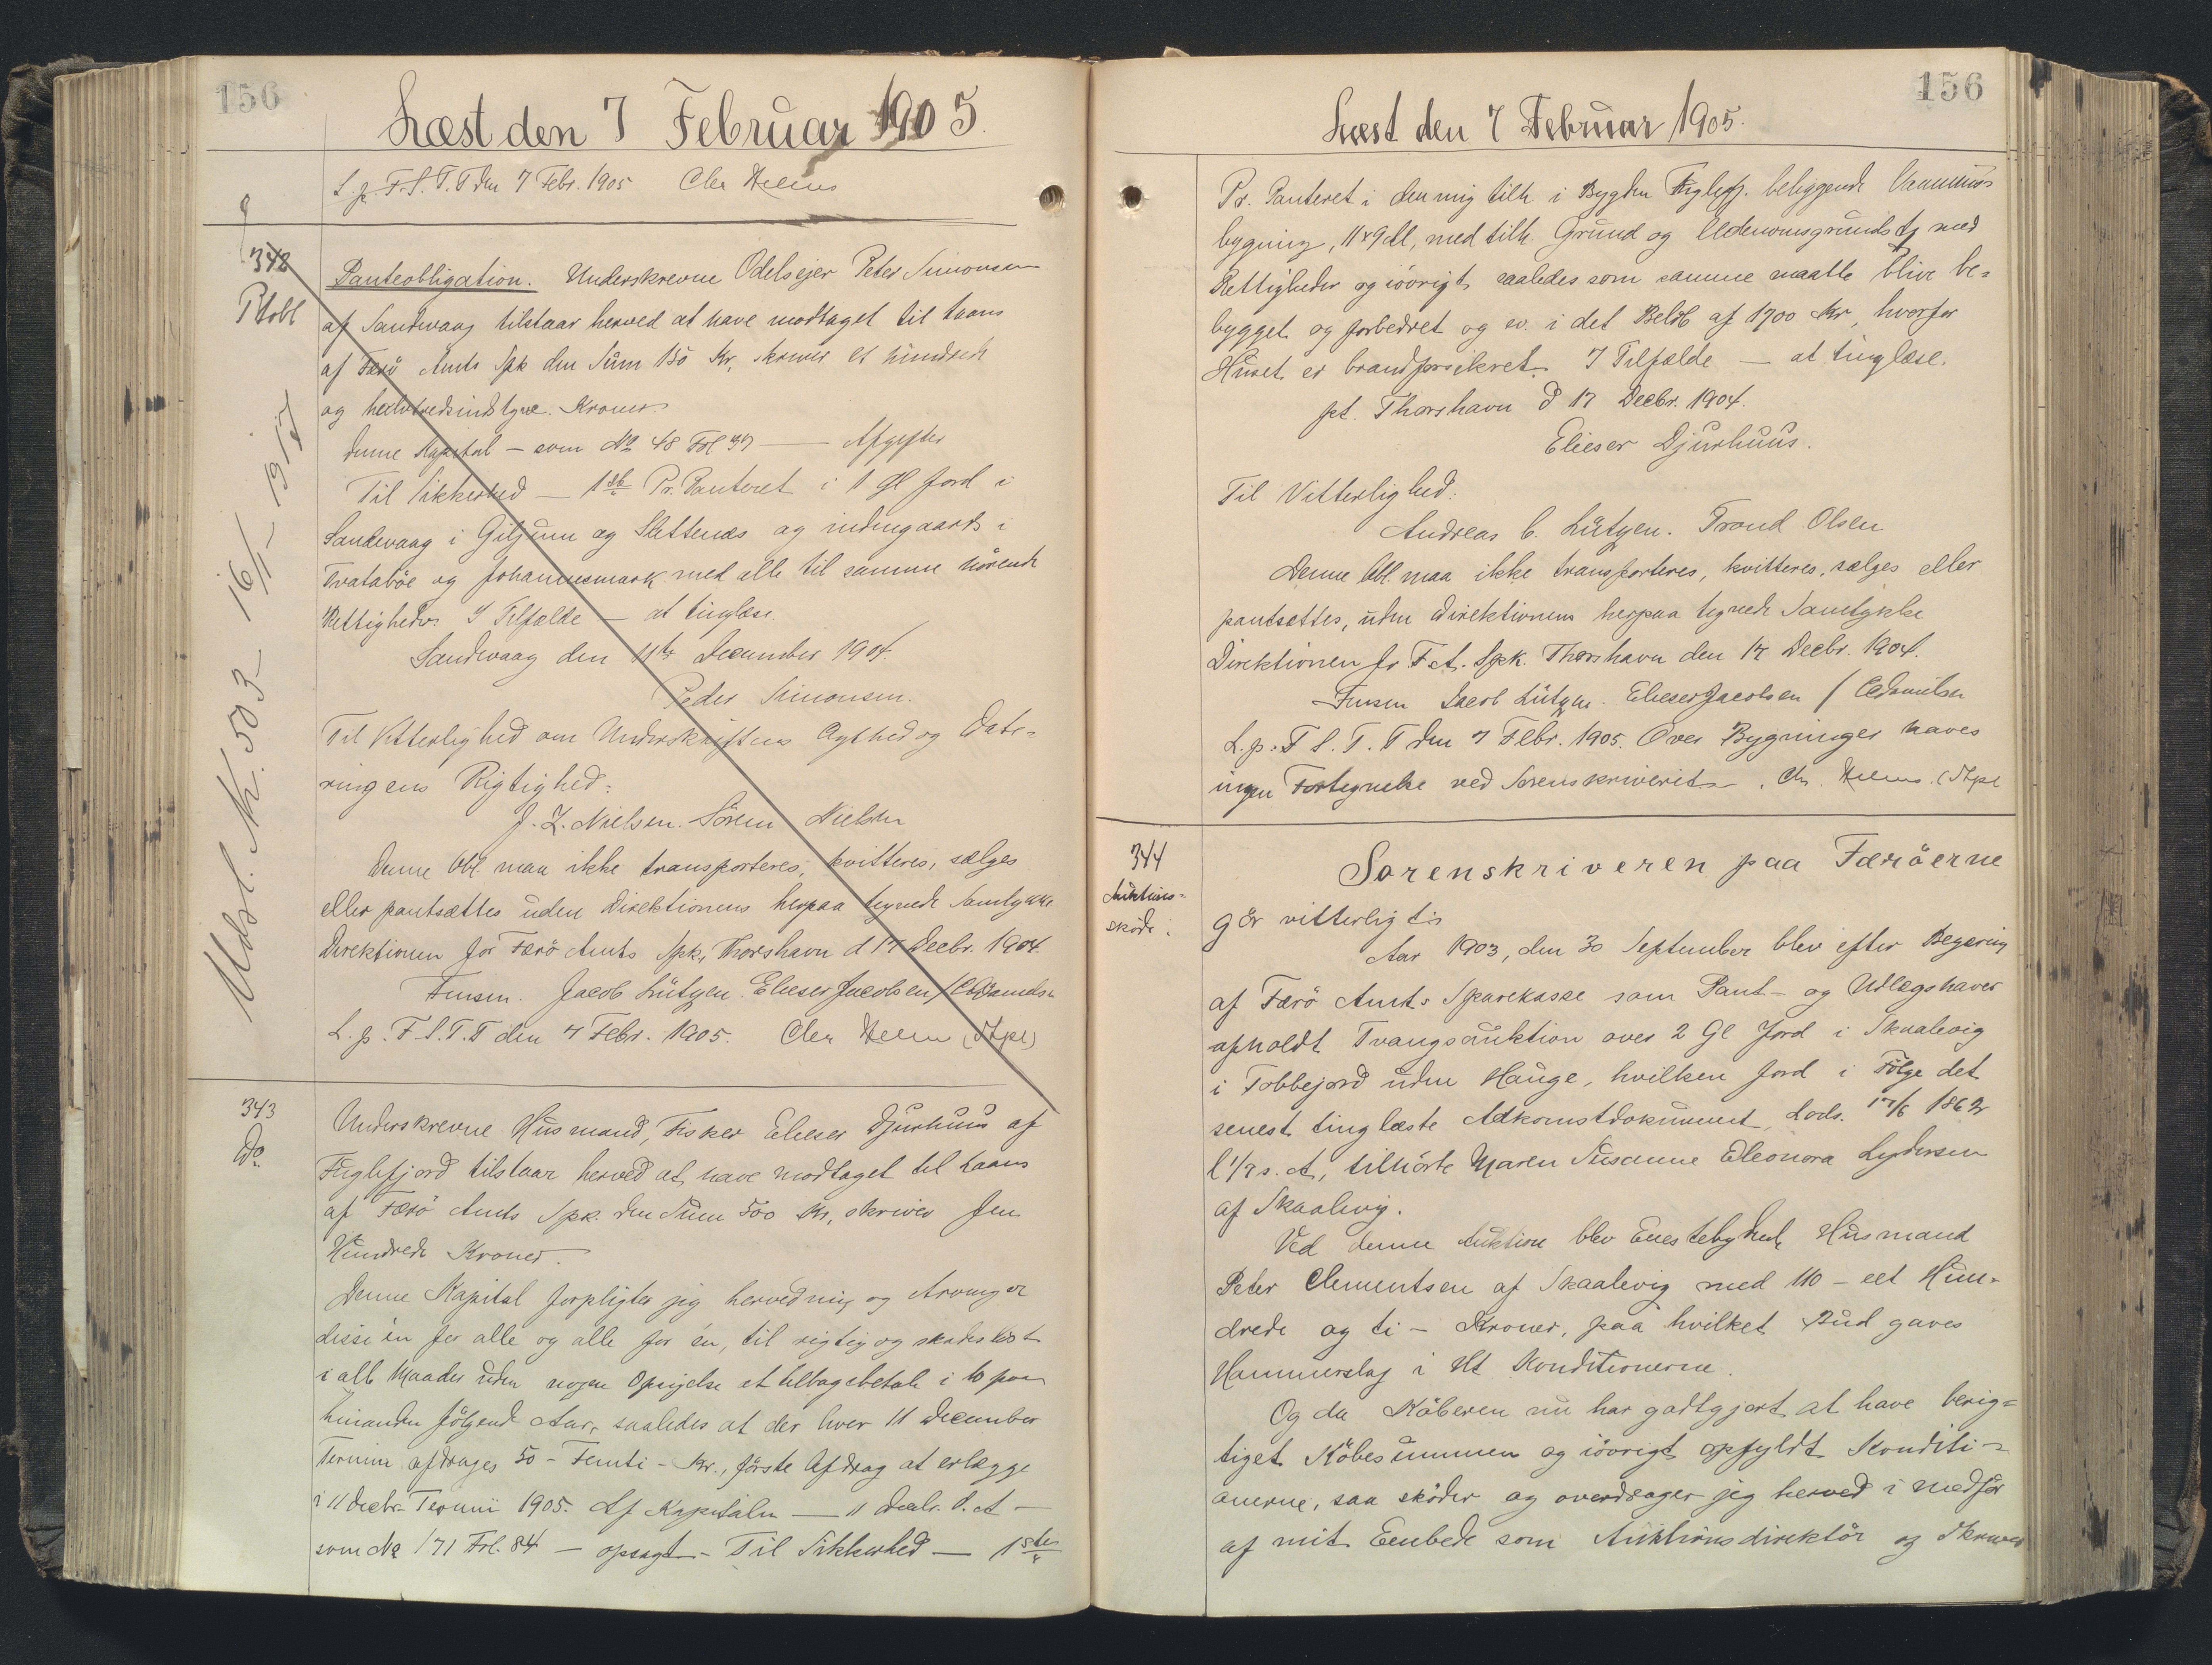 156
Læst den 7 Februar 1905.
L. p. F. S. T. T den 7 Febr. 1905 Chr Helms
342
Ptobl
Udsl. Nr. 503 - 16/1 - 1915
Panteobligation. Underskrevne Odelsejer Peter Simonsen
af Sandevaag tilstaar herved at have modtaget til Laans
af Færö Amts Spk den Sum 150 Kr, skriver et hundrede
og halvtredsindstyve Kroner.
Denne Kapital — som No 48 Fol 37 — Afgifter
Til Sikkerhed — 1ste Pr. Panteret i 1 Gl Jord i
Sandevaag i Giljum og Slettenæs og indengaards i
Tvatabøe og Johannesmark med alle til samme hörende
Rettigheder. I Tilfælde — at tinglæse.
Sandevaag den 11te December 1904.
Peder Simonsen.
Til Vitterlighed om Underskriftens Ægthed og Date-
ringens Rigtighed:
J. Z. Nielsen. Sören Nielsen
Denne Obl. maa ikke transporteres, kvitteres, sælges
eller pantsættes uden Direktionens herpaa tegnede Samtykke
Direktionen for Færö Amts Spk, Thorshavn d 17 Decbr. 1904.
Finsen. Jacob Lützen. Elieser Jacobsen / C Danielsen
L. p. F. S. T. T den 7 Febr. 1905. Chr Helms (Stpl)
343
Do
Underskrevne Husmand, Fisker Elieser Djurhuus af
Fuglefjord tilstaar herved at have modtaget til Laans
af Færö Amts Spk. den Sum 500 Kr, skriver fem
Hundrede Kroner.
Denne Kapital forpligter jeg herved mig og Arvinger
disse én for alle og alle for én, til rigtig og skadeslöst
i alle Maader uden nogen Opsigelse at tilbagebetale i 10 paa
hinanden fölgende Aar, saaledes at der hver 11 December
Termin afdrages 50 - Femti - Kr., förste Afdrag at erlægge
i 11 Decbr. Termin 1905. Af Kapitalen — 11 Decbr. d. A —
som No 171 Fol. 84 — opsagt - Til Sikkerhed — 1ste
156
Læst den 7 Februar 1905.
Pr. Panteret i den mig tilh. i Bygden Fuglefj. beliggende Vaanings
bygning, 11 x 9 Al, med tilh. Grund og Udenomsgrundstj med
Rettigheder og iövrigt saaledes som samme maatte blive be-
bygget og forbedret og ev. i det Belöb af 1700 Kr, hvorfor
Huset er brandforsikret. I Tilfælde — at tinglæse.
pt. Thorshavn d 17 Decbr. 1904.
Elieser Djurhuus.
Til Vitterlighed:
Andreas C. Lützen. Trond Olsen
Denne Obl. maa ikke transporteres, kvitteres, sælges eller
pantsættes, uden Direktionens herpaa tegnede Samtykke
Direktionen for F. A. Spk. Thorshavn den 17 Decbr. 1904.
Finsen Jacob Lützen. Elieser Jacobsen / C Danielsen
L. p. F S. T. T den 7 Febr. 1905. Over Bygninger haves
ingen Fortegnelse ved Sorenskriveriet. Chr. Helms. (Stpl
344
Auktions-
sköde:
Sorenskriveren paa Færöerne
gör vitterligt:
Aar 1903, den 30 September blev efter Begæring
af Færö Amts Sparekasse som Pant- og Udlægshaver
afholdt Tvangsauktion over 2 Gl Jord i Skaalevig
i Tobbejord uden Hauge, hvilken Jord i Fölge det
senest tinglæste Adkomstdokument, dads. 17/6 1862
l 1/7 s. A, tilhörte Maren Susanne Eleonora Lydersen
af Skaalevig.
Ved denne Auktion blev Enestebydende Husmand
Peter Clementsen af Skaalevig med 110 - eet Hun-
drede og ti - Kroner, paa hvilket Bud gaves
Hammerslag i Ht Konditionerne.
Og da Köberen nu har godtgjort at have berig-
tiget Köbesummen og iövrigt opfyldt Konditi-
onerne, saa sköder og overdrager jeg herved i Medför
af mit Embede som Auktionsdirektör og Skriver